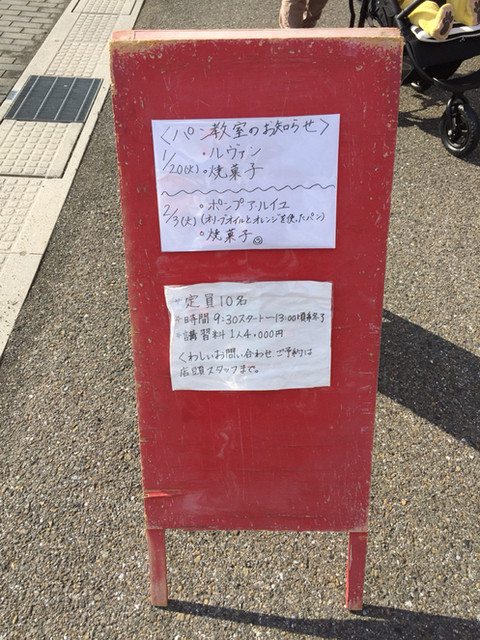 〈パン教室のお知らせ〉
1/20(火) ・ルヴァン
・焼菓子
2/3(火) ・ポンプアルイユ
(オリーブオイルとオレンジを使ったパン)
・焼菓子
※定員10名
※時間 9:30スタート〜13:00頃終了
※講習料 1人4,000円
くわしいお問い合わせ ご予約は
店頭スタッフまで。